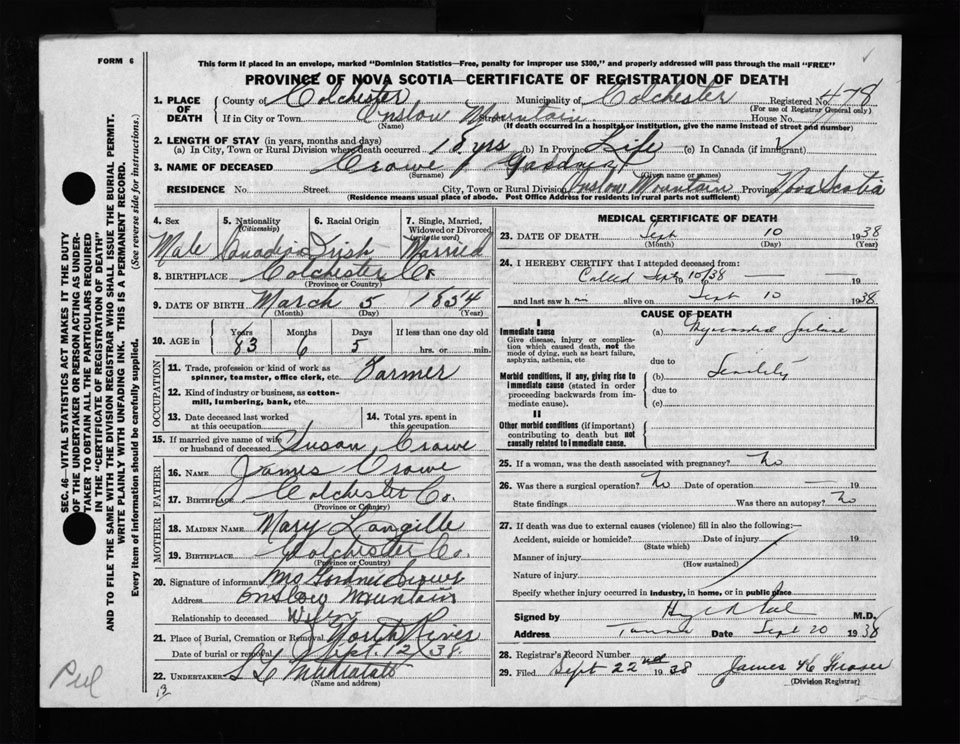 FORM 6
This form if placed in an envelope, marked "Dominion Statistics—Free, penalty for improper use $300," and properly addressed will pass through the mail "FREE"
PROVINCE OF NOVA SCOTIA—CERTIFICATE OF REGISTRATION OF DEATH
1. PLACE OF DEATH County of Colchester Municipality of Colchester Registered No. 478
(For use of Registrar General only)
If in City or Town Onslow Mountain Street House No.
(Name) (If death occurred in a hospital or institution, give the name instead of street and number)
2. LENGTH OF STAY (in years, months and days)
(a) In City, Town or Rural Division where death occurred yrs (b) In Province Life (c) In Canada (if immigrant)
3. NAME OF DECEASED Crowe
(Surname) (Given name or names)
RESIDENCE No. Street City, Town or Rural Division Onslow Mountain Province Nova Scotia
(Residence means usual place of abode. Post Office Address for residents in rural parts not sufficient)
4. Sex 5. Nationality (Citizenship) 6. Racial Origin 7. Single, Married, Widowed or Divorced (write the word)
Male Canadian Irish Married
8. BIRTHPLACE Colchester Co
(Province or Country)
9. DATE OF BIRTH March 5 1854
(Month) (Day) (Year)
10. AGE in Years Months Days If less than one day old
83 6 5 hrs. or min.
OCCUPATION
11. Trade, profession or kind of work as spinner, teamster, office clerk, etc. Farmer
12. Kind of industry or business, as cotton-mill, lumbering, bank, etc.
13. Date deceased last worked at this occupation
14. Total yrs. spent in this occupation
15. If married give name of wife or husband of deceased Susan Crowe
FATHER
16. NAME James Crowe
17. BIRTHPLACE Colchester Co.
(Province or Country)
MOTHER
18. MAIDEN NAME Mary Langille
19. BIRTHPLACE Colchester Co.
(Province or Country)
20. Signature of informant Mrs Crowe
Address Onslow Mountain
Relationship to deceased Wife
21. Place of Burial, Cremation or Removal North River
Date of burial or removal Sept. 12 38.
22. UNDERTAKER
(Name and address)
MEDICAL CERTIFICATE OF DEATH
23. DATE OF DEATH Sept 10 1938
(Month) (Day) (Year)
24. I HEREBY CERTIFY that I attended deceased from:
Called Sept 10/38 19 — 19
and last saw him alive on Sept 10 1938.
CAUSE OF DEATH
I
Immediate cause (a) Myocardial failure
Give disease, injury or complication which caused death, not the mode of dying, such as heart failure, asphyxia, asthenia, etc
due to
Morbid conditions, if any, giving rise to immediate cause (stated in order proceeding backwards from immediate cause). (b) Senility
due to
(c)
II
Other morbid conditions (if important) contributing to death but not causally related to immediate cause.
25. If a woman, was the death associated with pregnancy? No
26. Was there a surgical operation? No Date of operation — 19
State findings Was there an autopsy? No
27. If death was due to external causes (violence) fill in also the following:—
Accident, suicide or homicide? Date of injury 19
(State which)
Manner of injury
(How sustained)
Nature of injury
Specify whether injury occurred in industry, in home, or in public place
Signed by M.D.
Address Date Sept 20 1938
28. Registrar's Record Number
29. Filed Sept 22nd 1938 James K Fraser
(Division Registrar)
SEC. 46—VITAL STATISTICS ACT MAKES IT THE DUTY
OF THE UNDERTAKER OR PERSON ACTING AS UNDER-
TAKER TO OBTAIN ALL THE PARTICULARS REQUIRED
IN THE "CERTIFICATE OF REGISTRATION OF DEATH"
AND TO FILE THE SAME WITH THE DIVISION REGISTRAR WHO SHALL ISSUE THE BURIAL PERMIT.
WRITE PLAINLY WITH UNFADING INK. THIS IS A PERMANENT RECORD.
Every item of information should be carefully supplied. (See reverse side for instructions.)